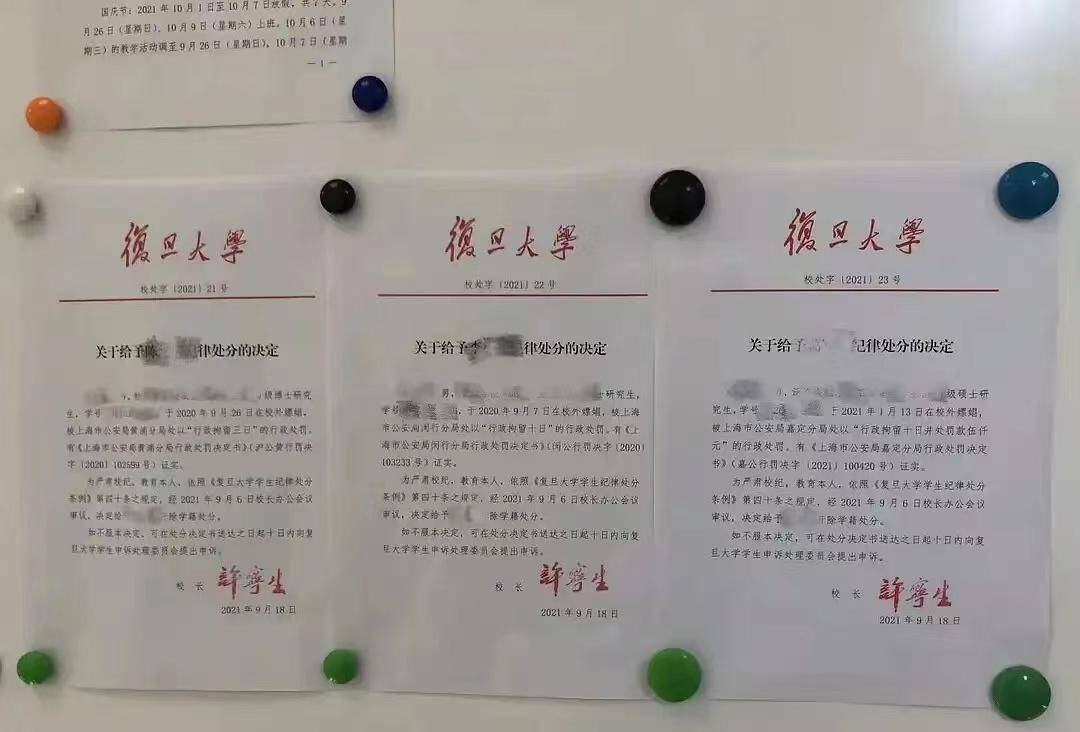 国庆节：2021 年 10 月 1 日至 10 月 7 日放假，共 7 天。9
月 26 日（星期日）、10 月 9 日（星期六）上班。10 月 6 日（星
期三）的教学活动调至 9 月 26 日（星期日），10 月 7 日（星期
— 1 —
復旦大學
校处字〔2021〕21 号
关于给予陈 律处分的决定
级博士研究
生，学号 于 2020 年 9 月 26 日在校外嫖娼，
被上海市公安局黄浦分局处以“行政拘留三日”的行政处罚。
有《上海市公安局黄浦分局行政处罚决定书》（沪公黄行罚决
字〔2020〕102599 号）证实。
为严肃校纪，教育本人，依照《复旦大学学生纪律处分
条例》第四十条之规定，经 2021 年 9 月 6 日校长办公会议
审议，决定给 除学籍处分。
如不服本决定，可在处分决定书送达之日起十日内向复
旦大学学生申诉处理委员会提出申诉。
校 长 許寧生
2021 年 9 月 18 日
復旦大學
校处字〔2021〕22 号
关于给予李 律处分的决定
男， 士研究生，
学号 ，于 2020 年 9 月 7 日在校外嫖娼，被上
海市公安局闵行分局处以“行政拘留十日”的行政处罚。有《上
海市公安局闵行分局行政处罚决定书》（闵公行罚决字〔2020〕
103233 号）证实。
为严肃校纪，教育本人，依照《复旦大学学生纪律处分
条例》第四十条之规定，经 2021 年 9 月 6 日校长办公会议
审议，决定给予 除学籍处分。
如不服本决定，可在处分决定书送达之日起十日内向复
旦大学学生申诉处理委员会提出申诉。
校 长 許寧生
2021 年 9 月 18 日
復旦大學
校处字〔2021〕23 号
关于给予 纪律处分的决定
级硕士研
究生，学号 于 2021 年 1 月 13 日在校外嫖娼，
被上海市公安局嘉定分局处以“行政拘留十日并处罚款伍仟
元”的行政处罚。有《上海市公安局嘉定分局行政处罚决定
书》（嘉公行罚决字〔2021〕100420 号）证实。
为严肃校纪，教育本人，依照《复旦大学学生纪律处分
条例》第四十条之规定，经 2021 年 9 月 6 日校长办公会议
审议，决定给予 除学籍处分。
如不服本决定，可在处分决定书送达之日起十日内向
复旦大学学生申诉处理委员会提出申诉。
校 长 許寧生
2021 年 9 月 18 日